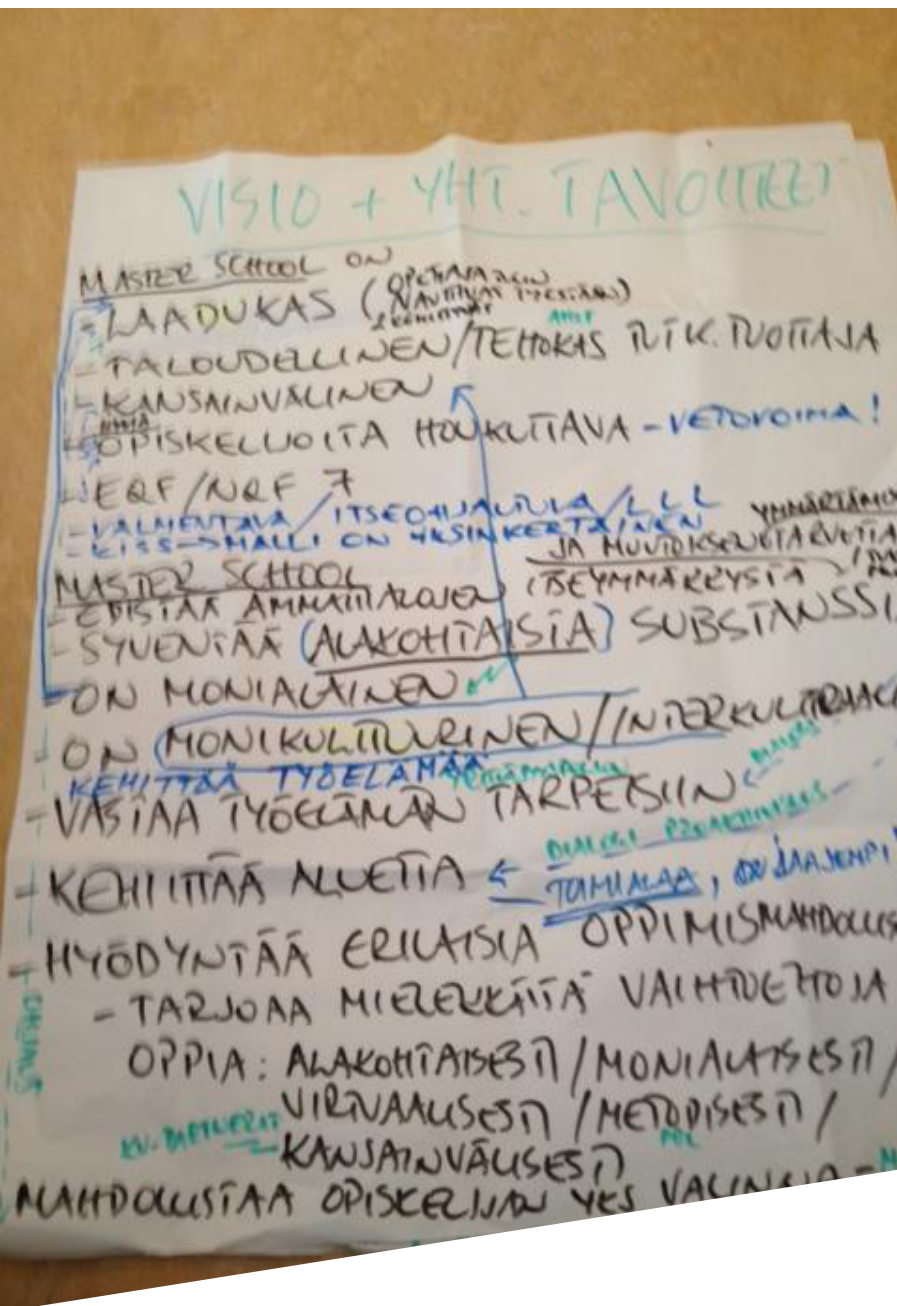 VISIO + YHT. TAVOITTEET
MASTER SCHOOL ON
- LAADUKAS (OPETTAJATKIN NAUTTIVAT TYÖSTÄÄN)
- TALOUDELLINEN/TEHOKAS TUTK. TUOTTAJA
- KANSAINVÄLINEN
- OPISKELIJOITA HOUKUTTAVA - VETOVOIMA!
- EQF/NQF 7
- VALMENTAVA/ITSEOHJAUTUVA/LLL
- KISS → MALLI ON YKSINKERTAINEN
JA MUUTOKSENTARVETTA
MASTER SCHOOL
- EDISTÄÄ AMMATTIALOJEN ITSEYMMÄRRYSTÄ
- SYVENTÄÄ (ALAKOHTAISTA) SUBSTANSSI
- ON MONIALAINEN
- ON MONIKULTTUURINEN/INTERKULTURAA
KEHITTÄÄ TYÖELÄMÄÄ
- VASTAA TYÖELÄMÄN TARPEISIIN
DIALOGI
- KEHITTÄÄ ALUETTA ← TOIMIALAA,
- HYÖDYNTÄÄ ERILAISIA OPPIMISMAHDOLLIS
- TARJOAA MIELEKKÄITÄ VAIHTOEHTOJA
OPPIA: ALAKOHTAISESTI/MONIALAISESTI/
VIRTUAALISESTI/METODISESTI/
KV-PARTNERIT KANSAINVÄLISESTI
MAHDOLLISTAA OPISKELIJAN YKS VALINNAN